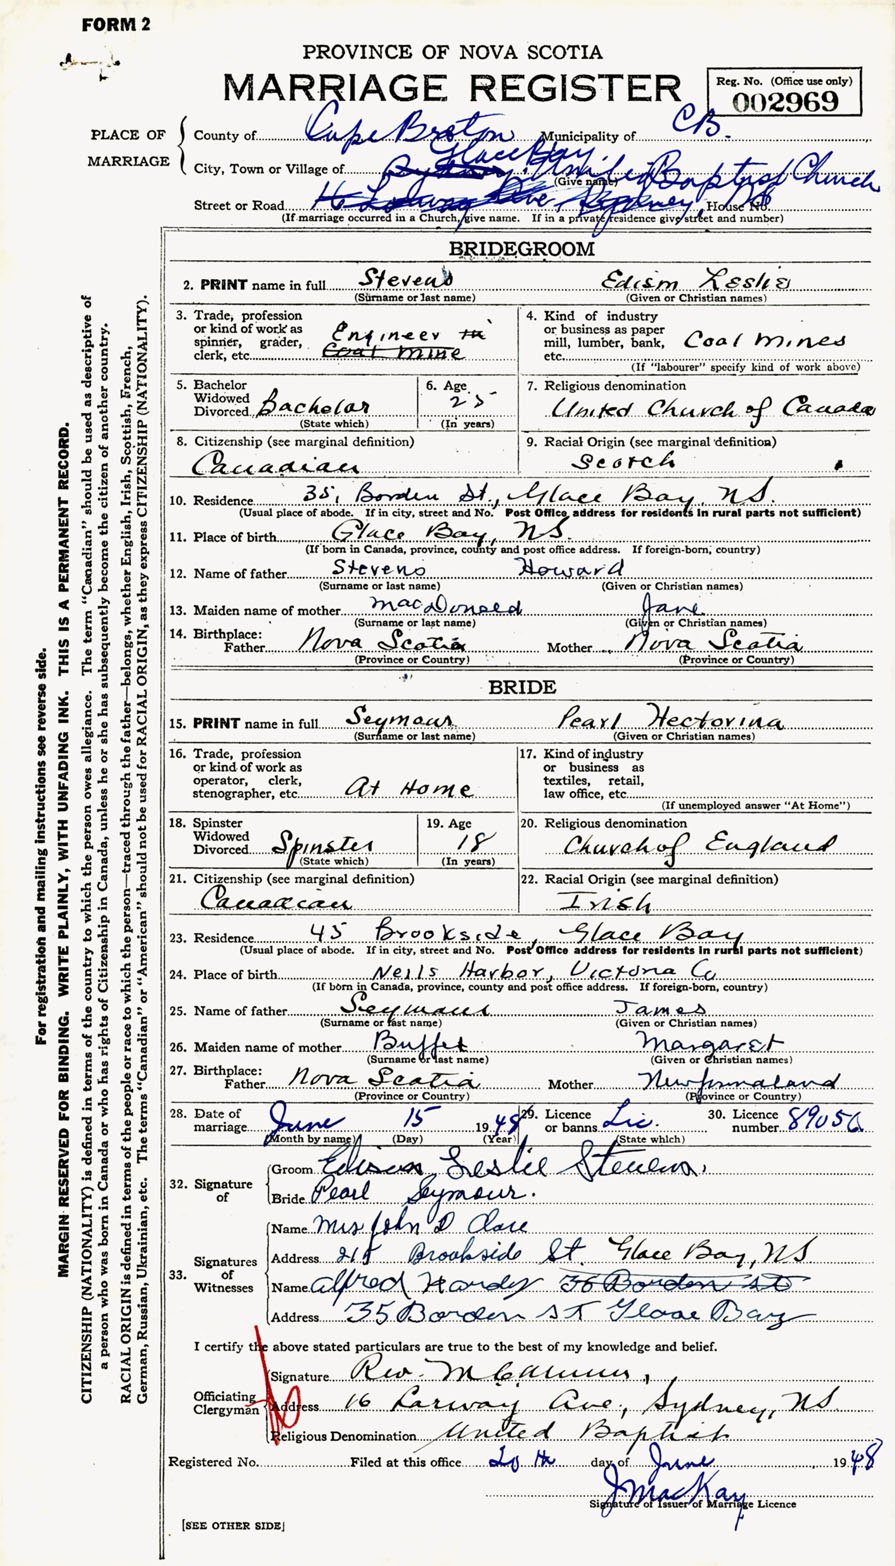 FORM 2
PROVINCE OF NOVA SCOTIA
MARRIAGE REGISTER
Reg. No. (Office use only)
002969
PLACE OF MARRIAGE
County of Cape Breton Municipality of C.B.
City, Town or Village of Glace Bay. United Baptist Church
(Give name)
Street or Road House No.
(If marriage occurred in a Church, give name. If in a private residence give street and number)
BRIDEGROOM
2. PRINT name in full Stevens Edison Leslie
(Surname or last name) (Given or Christian names)
3. Trade, profession or kind of work as spinner, grader, clerk, etc. Engineer in Coal Mine
4. Kind of industry or business as paper mill, lumber, bank, etc. Coal Mines
(If "labourer" specify kind of work above)
5. Bachelor Widowed Divorced Bachelor
(State which)
6. Age 25
(In years)
7. Religious denomination
United Church of Canada
8. Citizenship (see marginal definition)
Canadian
9. Racial Origin (see marginal definition)
Scotch
10. Residence 35, Borden St., Glace Bay, NS.
(Usual place of abode. If in city, street and No. Post Office address for residents in rural parts not sufficient)
11. Place of birth Glace Bay, NS.
(If born in Canada, province, county and post office address. If foreign-born, country)
12. Name of father Stevens Howard
(Surname or last name) (Given or Christian names)
13. Maiden name of mother MacDonald Jane
(Surname or last name) (Given or Christian names)
14. Birthplace:
Father Nova Scotia Mother Nova Scotia
(Province or Country) (Province or Country)
BRIDE
15. PRINT name in full Seymour Pearl Hectorina
(Surname or last name) (Given or Christian names)
16. Trade, profession or kind of work as operator, clerk, stenographer, etc. At Home
17. Kind of industry or business as textiles, retail, law office, etc.
(If unemployed answer "At Home")
18. Spinster Widowed Divorced Spinster
(State which)
19. Age 18
(In years)
20. Religious denomination
Church of England
21. Citizenship (see marginal definition)
Canadian
22. Racial Origin (see marginal definition)
Irish
23. Residence 45 Brookside, Glace Bay
(Usual place of abode. If in city, street and No. Post Office address for residents in rural parts not sufficient)
24. Place of birth Neils Harbor, Victoria Co
(If born in Canada, province, county and post office address. If foreign-born, country)
25. Name of father Seymour James
(Surname or last name) (Given or Christian names)
26. Maiden name of mother Buffet Margaret
(Surname or last name) (Given or Christian names)
27. Birthplace:
Father Nova Scotia Mother Newfoundland
(Province or Country) (Province or Country)
28. Date of marriage June 15 1948
(Month by name) (Day) (Year)
29. Licence or banns Lic.
(State which)
30. Licence number 89056
32. Signature of
Groom Edison Leslie Stevens.
Bride Pearl Seymour.
33. Signatures of Witnesses
Name Mrs John D
Address Brookside St. Glace Bay, NS
Name Alfred Hardy 36 Borden St
Address 35 Borden St Glace Bay
I certify the above stated particulars are true to the best of my knowledge and belief.
Officiating Clergyman
Signature Rev.
Address 16 Ave., Sydney, NS
Religious Denomination United Baptist
Registered No. Filed at this office 20th day of June 1948
J MacKay
Signature of Issuer of Marriage Licence
[SEE OTHER SIDE]
For registration and mailing instructions see reverse side.
MARGIN RESERVED FOR BINDING. WRITE PLAINLY, WITH UNFADING INK. THIS IS A PERMANENT RECORD.
CITIZENSHIP (NATIONALITY) is defined in terms of the country to which the person owes allegiance. The term "Canadian" should be used as descriptive of
a person who was born in Canada or who has rights of Citizenship in Canada, unless he or she has subsequently become the citizen of another country.
RACIAL ORIGIN is defined in terms of the people or race to which the person—traced through the father—belongs, whether English, Irish, Scottish, French,
German, Russian, Ukrainian, etc. The terms "Canadian" or "American" should not be used for RACIAL ORIGIN, as they express CITIZENSHIP (NATIONALITY).